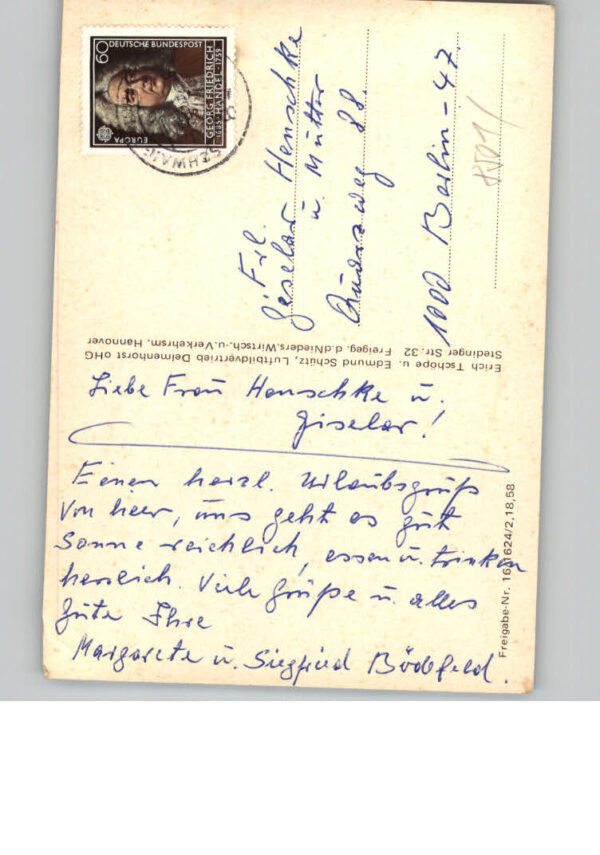 60 DEUTSCHE BUNDESPOST
GEORG FRIEDRICH
1685 · HÄNDEL · 1759
EUROPA
Frl.
Giselar Henschke
u. Mutter
88.
1000 Berlin - 47.
Erich Tschöpe u. Edmund Schütz, Luftbildvertrieb Delmenhorst oHG
Stedinger Str. 32 Freigeg. d.d.Nieders.Wirtsch.-u.Verkehrsm. Hannover
Liebe Frau Henschke u.
Giselar!
Einen herzl. Urlaubsgruß
von hier, uns geht es gut
Sonne reichlich, essen u. trinken
herrlich. Viele Grüße u. alles
Gute Ihre
Margarete u. Siegfried
Freigabe-Nr. 16/1624/2,18,58